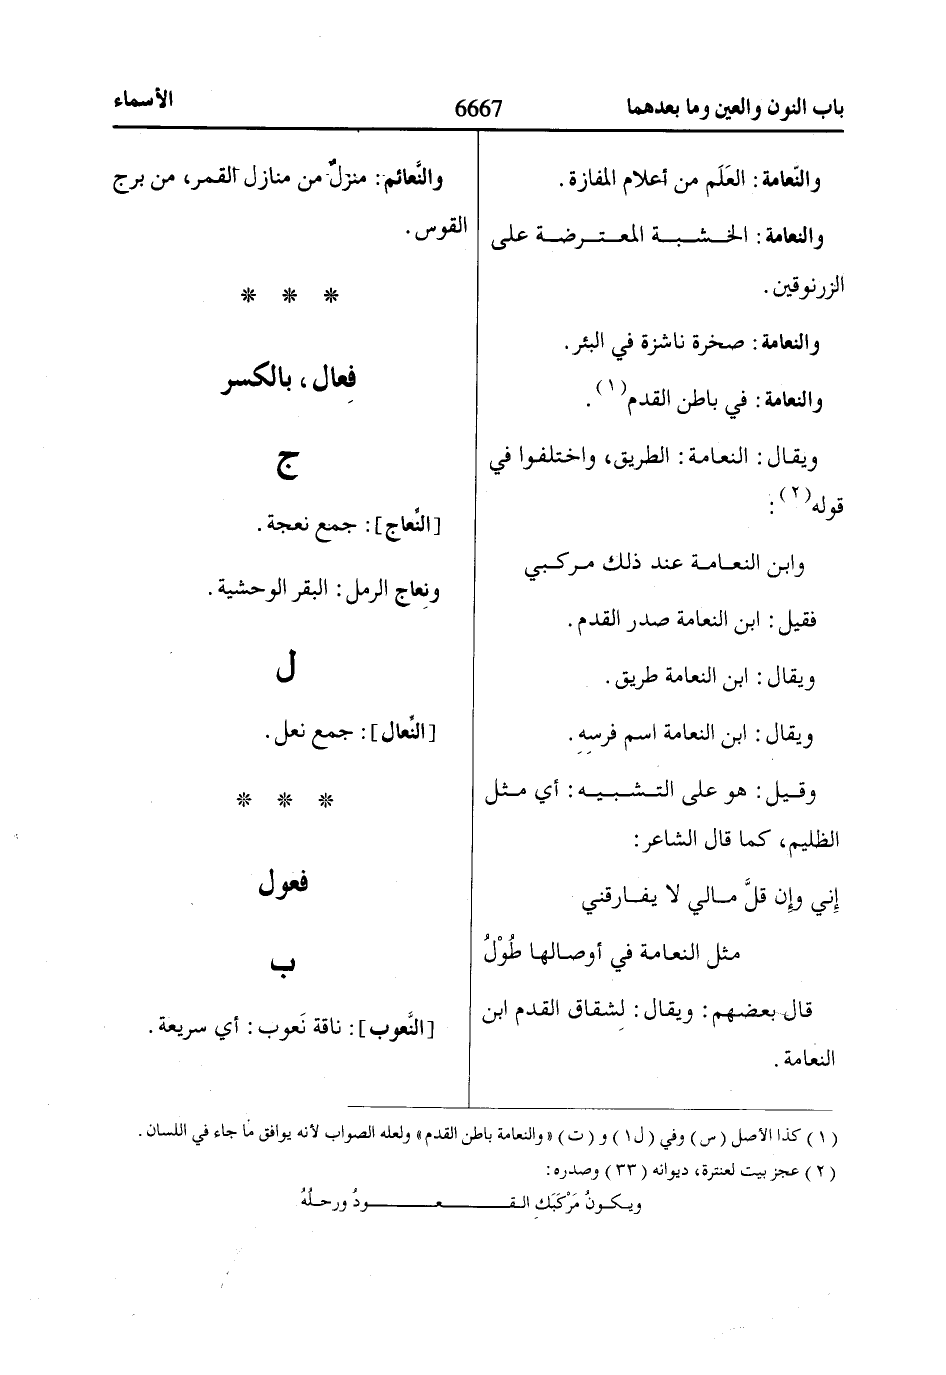 باب النون والعين وما بعدهما 6667 الأسماء
والنّعامة: العَلَم من أعلام المفازة.
والنعامة: الخشبة المعترضة على
الزرنوقين.
والنعامة: صخرة ناشزة في البئر.
والنعامة: في باطن القدم(١).
ويقال: النعامة: الطريق، واختلفوا في
قوله(٢):
وابن النعامة عند ذلك مركبي
فقيل: ابن النعامة صدر القدم.
ويقال: ابن النعامة طريق.
ويقال: ابن النعامة اسم فرسِهِ.
وقيل: هو على التشبيه: أي مثل
الظليم، كما قال الشاعر:
إِني وإِن قلَّ مالي لا يفارقني
مثل النعامة في أوصالها طُوْلُ
قال بعضهم: ويقال: لِشقاق القدم ابن
النعامة.
والنَّعائم: منزلٌ من منازل القمر، من برج
القوس.
* * *
فِعال، بالكسر
ج
[النِّعاج]: جمع نعجة.
ونِعاج الرمل: البقر الوحشية.
ل
[النِّعال]: جمع نعل.
* * *
فَعول
ب
[النَّعوب]: ناقة نَعوب: أي سريعة.
(١) كذا الأصل (س) وفي (ل١) و(ت) «والنعامة باطن القدم» ولعله الصواب لأنه يوافق ما جاء في اللسان.
(٢) عجز بيت لعنترة، ديوانه (٣٣) وصدره:
ويكونُ مَرْكَبَكِ القعودُ ورحلُهُ